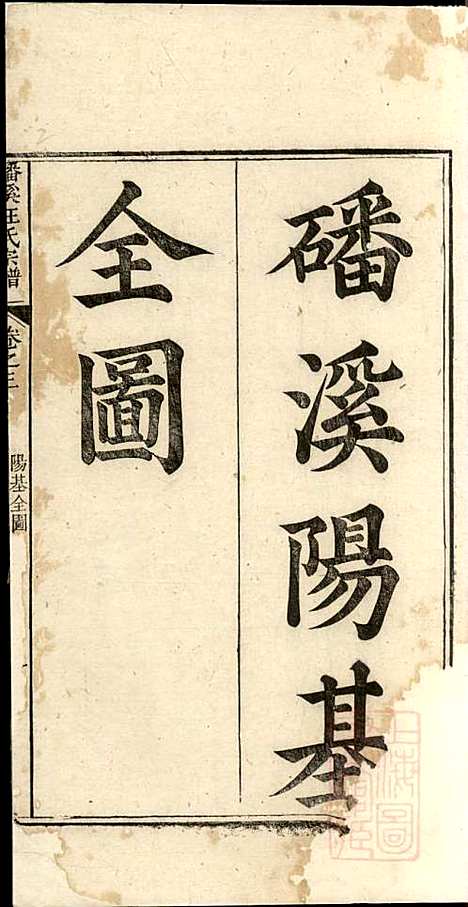 磻溪陽基
全圖
磻溪汪氏宗譜
卷之三
陽基全圖